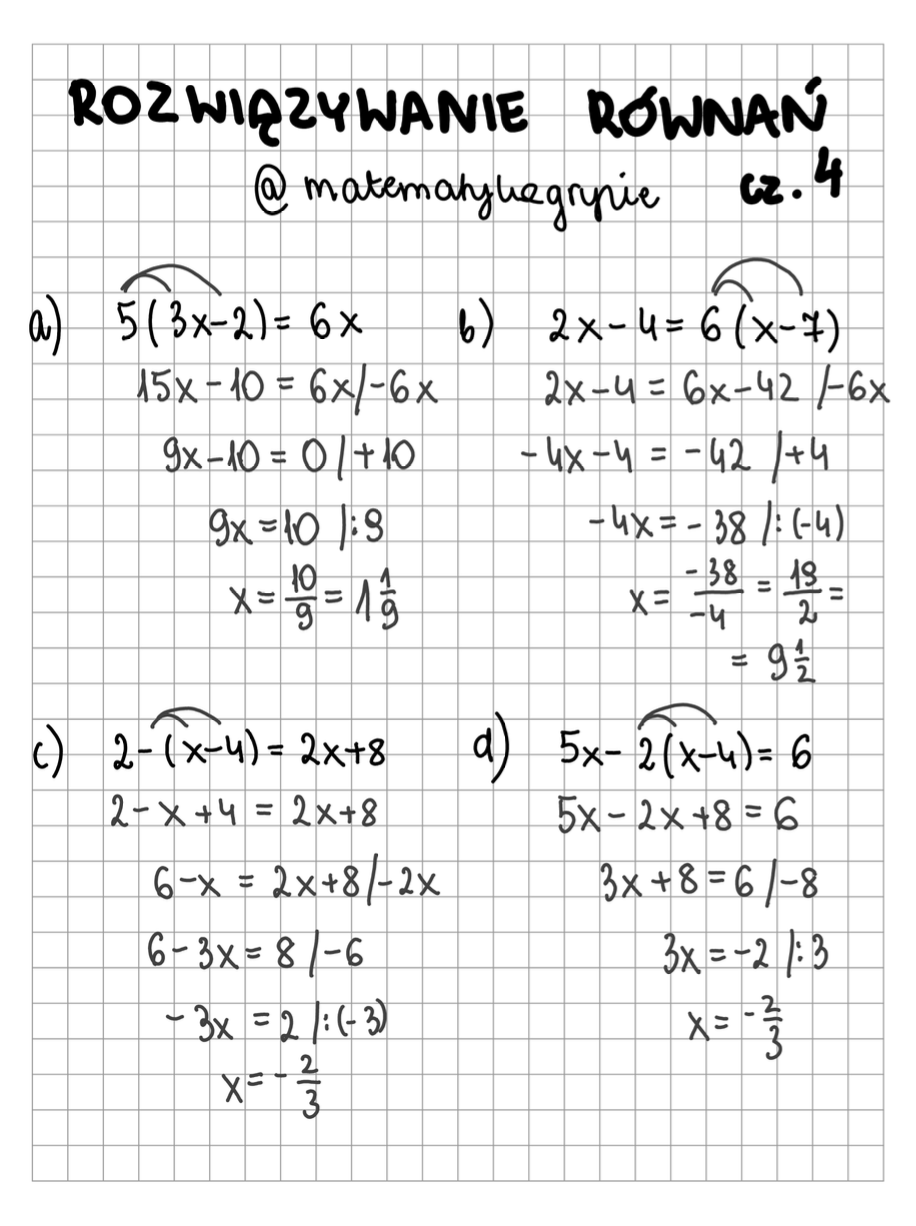 ROZWIĄZYWANIE RÓWNAŃ
@matematykagrypie cz. 4
a) 5(3x-2) = 6x
15x - 10 = 6x /-6x
9x - 10 = 0 /+10
9x = 10 /:9
x = 10/9 = 1 1/9
b) 2x - 4 = 6(x-7)
2x - 4 = 6x - 42 /-6x
-4x - 4 = -42 /+4
-4x = -38 /:(-4)
x = -38/-4 = 19/2 =
= 9 1/2
c) 2-(x-4) = 2x+8
2 - x + 4 = 2x+8
6 - x = 2x+8 /-2x
6 - 3x = 8 /-6
-3x = 2 /:(-3)
x = -2/3
d) 5x - 2(x-4) = 6
5x - 2x + 8 = 6
3x + 8 = 6 /-8
3x = -2 /:3
x = -2/3